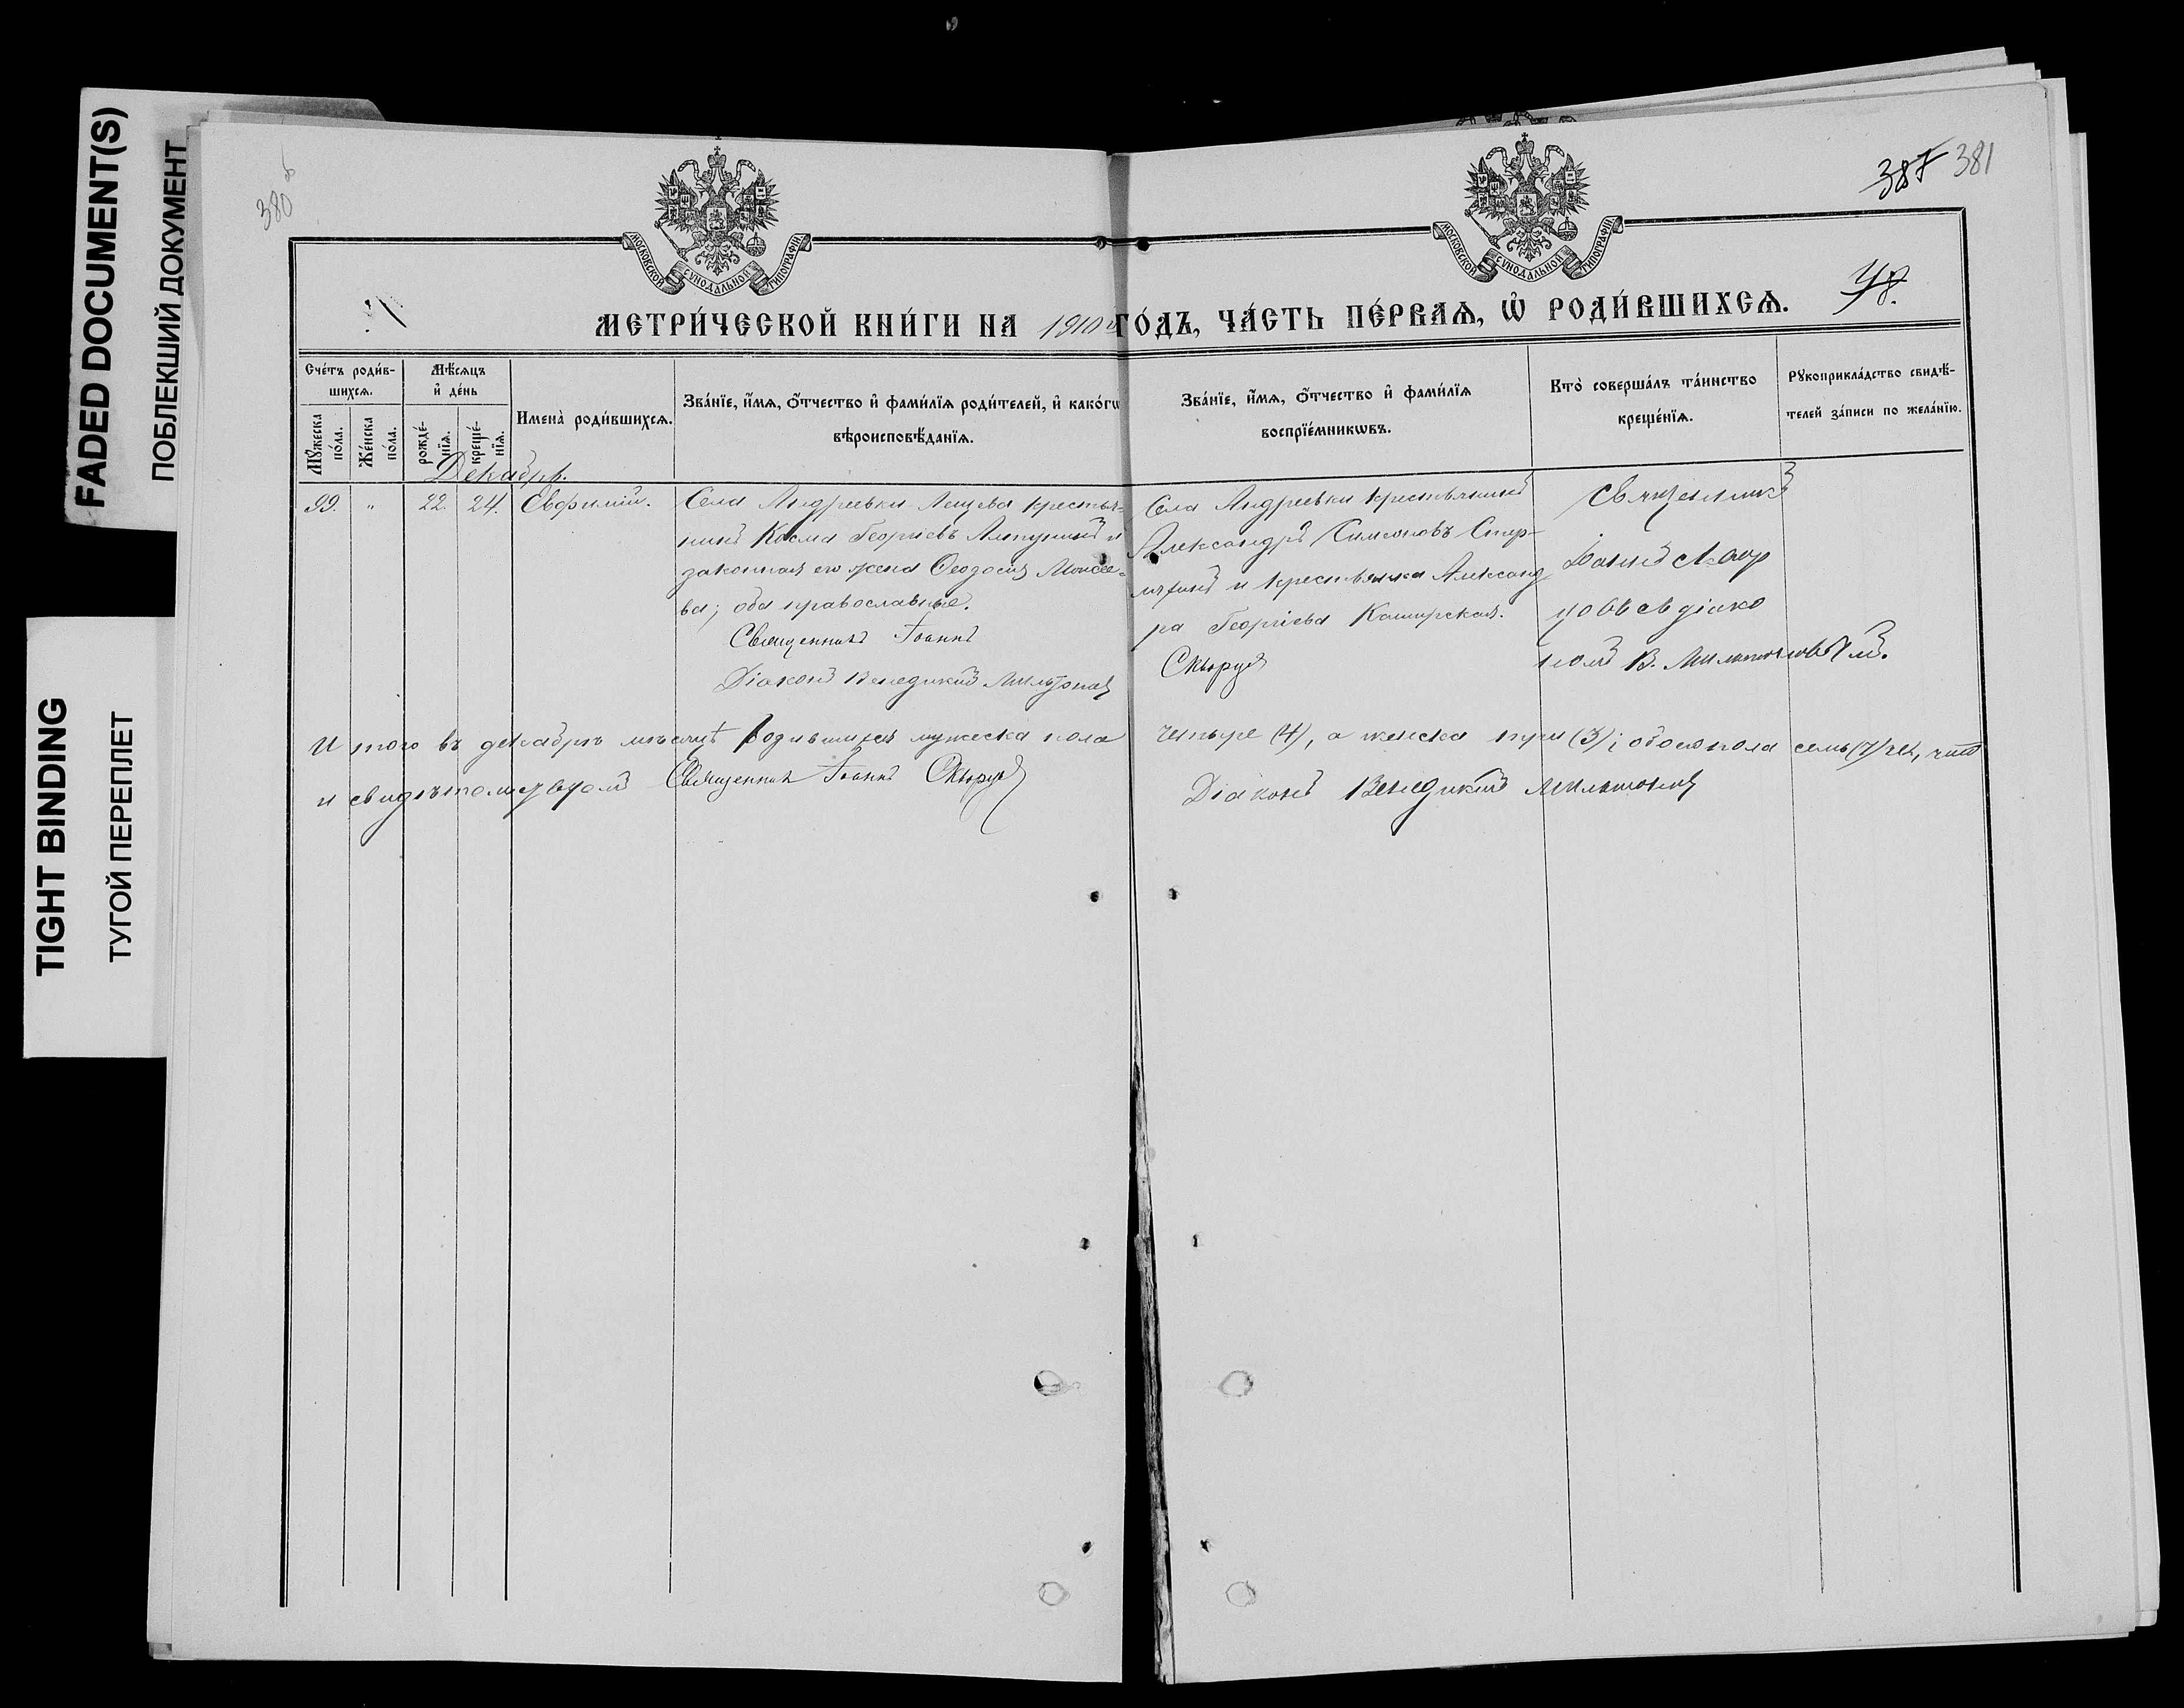 FADED DOCUMENT(S)
ПОБЛЕКШИЙ ДОКУМЕНТ
TIGHT BINDING
ТУГОЙ ПЕРЕПЛЕТ
380 об
387 381
МОСКОВСКОЙ СѴНОДАЛЬНОЙ ТИПОГРАФІИ
МОСКОВСКОЙ СѴНОДАЛЬНОЙ ТИПОГРАФІИ
МЕТРИ́ЧЕСКОЙ КНИ́ГИ НА 1910 ГО́ДЪ, ЧА́СТЬ ПЕ́РВАѦ, Ѡ҆ РОДИ́ВШИХСѦ.
Сче́тъ роди́в-
шихсѧ.
Мꙋ́жеска по́ла.
Же́нска по́ла.
Мѣ́сѧцъ
и҆ де́нь
рожде́-
нїѧ.
креще́-
нїѧ.
Имена̀ роди́вшихсѧ.
Зва́нїе, и҆́мѧ, ѻ҆́тчество и҆ фами́лїѧ роди́телей, и҆ како́гѡ
вѣроисповѣ́данїѧ.
Зва́нїе, и҆́мѧ, ѻ҆́тчество и҆ фами́лїѧ
воспрїе́мникѡвъ.
Кто̀ соверша́лъ та́инство
креще́нїѧ.
Рꙋкоприкла́дство свидѣ́-
телей за́писи по жела́нїю.
Декабрь.
99. " 22. 24. Евфимій.
Села Андреевки Лещева крестья-
нинъ Косма Георгіевъ и
законная его жена Ѳеодосія Моисее-
ва; оба православные.
Священникъ Іоаннъ
Діаконъ Венедиктъ Мильтонов
Села Андреевки крестьянинъ
Александръ Симеоновъ
и крестьянка Александ
ра Георгіева Каширская.
Скорух
Священникъ
Іоаннъ
съ діако
номъ В. Мильтоновымъ.
Итого въ декабрѣ мѣсяцѣ родившихся мужеска пола четыре (4), а женска три (3); обоего пола семь (7) чел, что
и свидѣтельствуемъ Священник Іоаннъ Діаконъ Венедиктъ Мильтонов